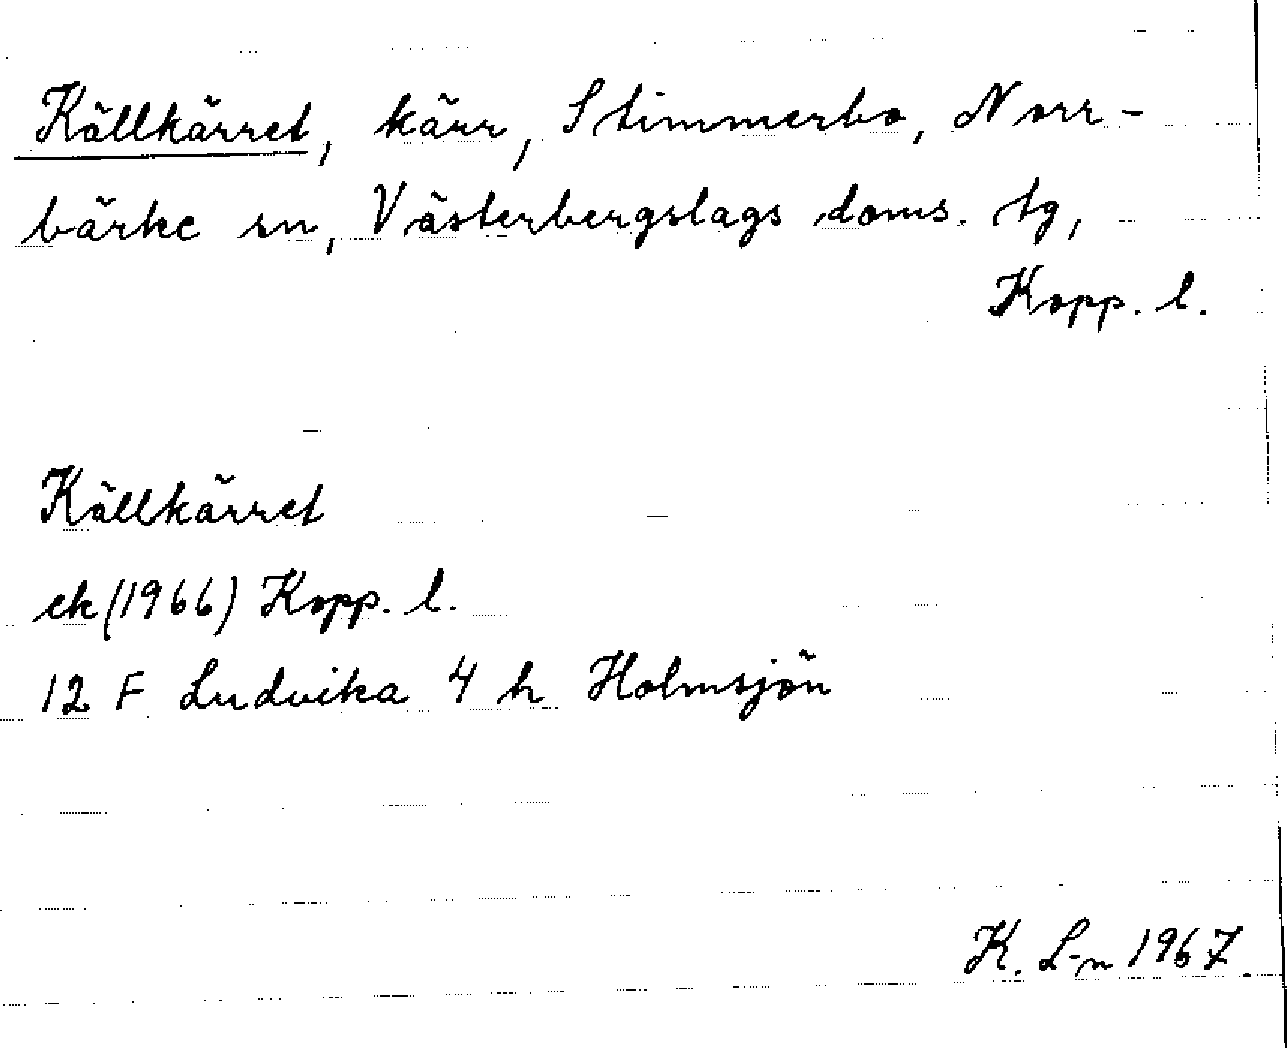 Källkärret, kärr, Stimmerbo, Norr-
bärke sn, Västerbergslags doms. tg,
Kopp. l.
Källkärret
ek (1966) Kopp. l.
12 F Ludvika 4 h Holmsjön
K. L-n 1967.